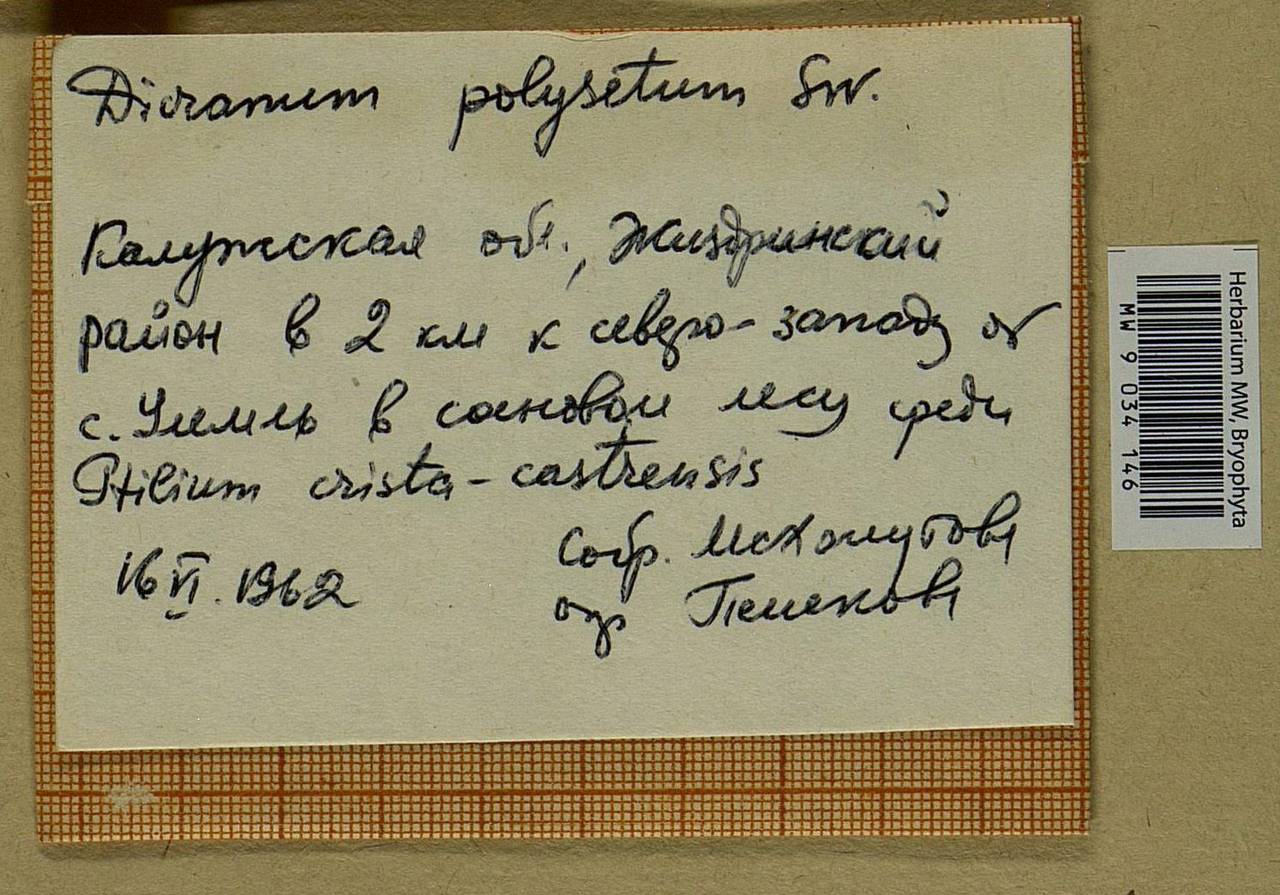 Dicranum polysetum Sw.
Калужская обл., Жиздринский
район в 2 км к северо-западу от
с. в сосновом лесу среди
Ptilium crista-castrensis
16 VI. 1962
Собр.
опр
Herbarium MW, Bryophyta
MW 9 034 146